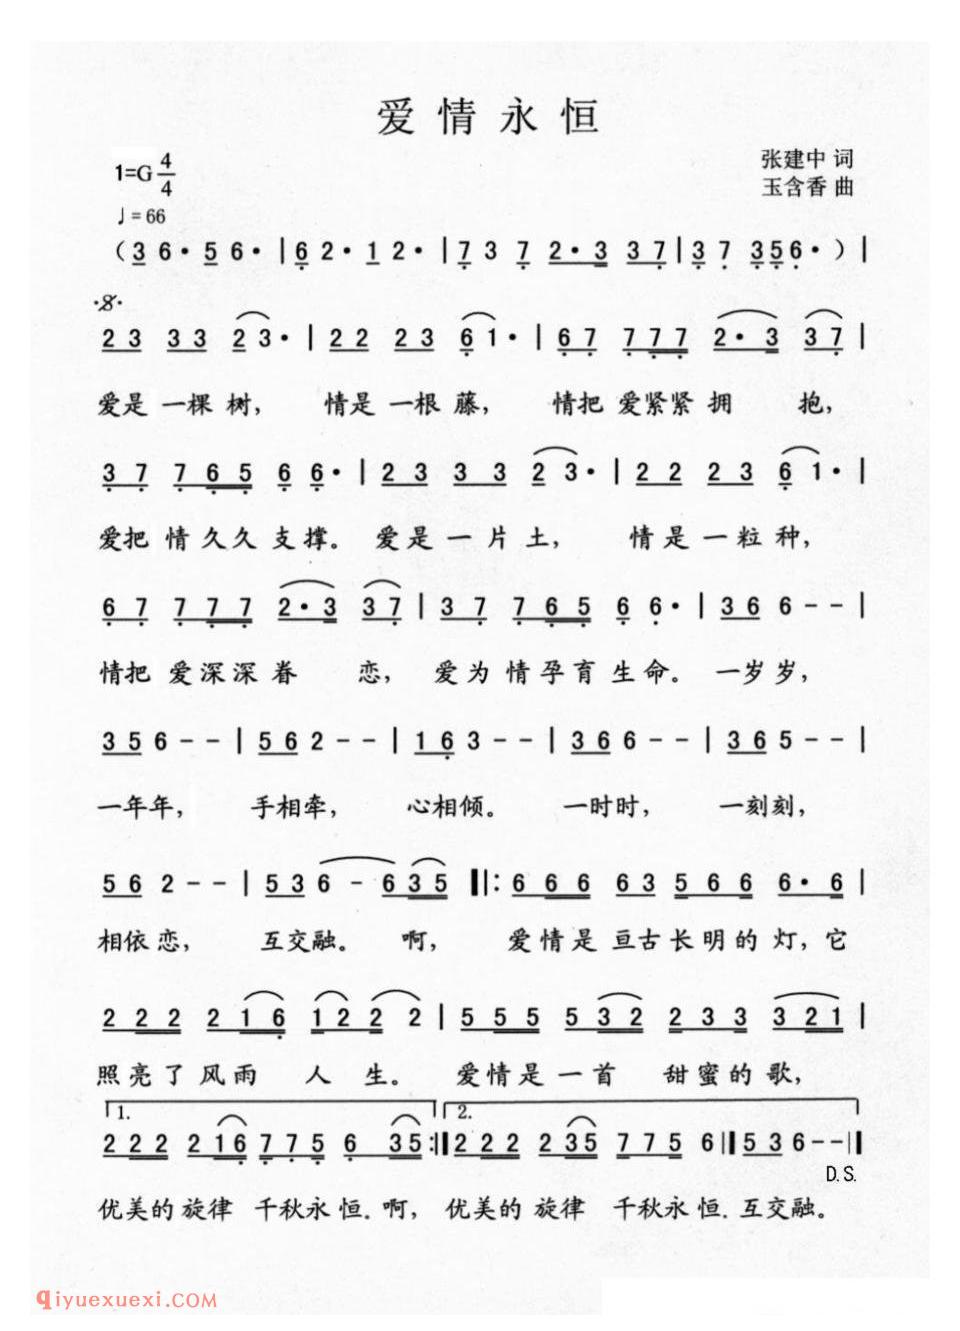 爱情永恒
1=G 4/4
张建中 词
♩=66
玉含香 曲
( 3 6· 5 6· | 6 2· 1 2· | 7 3 7 2·3 3 7 | 3 7 3 5 6· ) |
2 3 3 3 2 3· | 2 2 2 3 6 1· | 6 7 7 7 7 2·3 3 7 |
爱是 一棵 树, 情是 一根 藤, 情把 爱紧紧 拥 抱,
3 7 7 6 5 6 6· | 2 3 3 3 2 3· | 2 2 2 3 6 1· |
爱把 情久久 支撑。 爱是 一片 土, 情是 一粒 种,
6 7 7 7 7 2·3 3 7 | 3 7 7 6 5 6 6· | 3 6 6 - - |
情把 爱深深 眷 恋, 爱为 情孕育 生命。 一岁岁,
3 5 6 - - | 5 6 2 - - | 1 6 3 - - | 3 6 6 - - | 3 6 5 - - |
一年年, 手相牵, 心相倾。 一时时, 一刻刻,
5 6 2 - - | 5 3 6 - 6 3 5 ‖: 6 6 6 6 3 5 6 6 6· 6 |
相依恋, 互交融。 啊, 爱情是 亘古长明的 灯, 它
2 2 2 2 1 6 1 2 2 2 | 5 5 5 5 3 2 2 3 3 3 2 1 |
照亮了 风雨 人 生。 爱情是 一首 甜蜜的 歌,
1. 2.
2 2 2 2 1 6 7 7 5 6 3 5 :‖ 2 2 2 2 3 5 7 7 5 6 ‖ 5 3 6 - - ‖
D.S.
优美的 旋律 千秋永恒. 啊, 优美的 旋律 千秋永恒. 互交融。
qiyuexuexi.COM